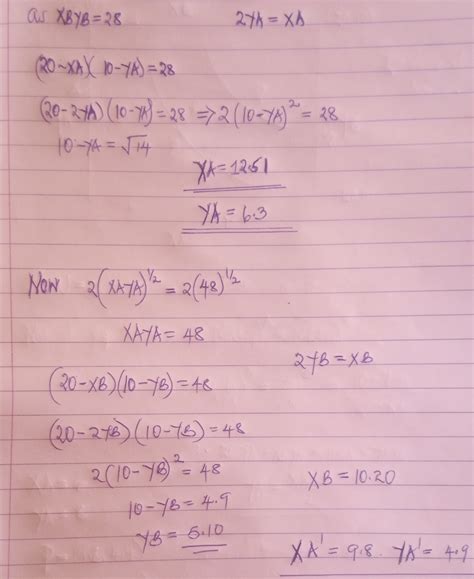 as XBYB = 28    2YA = XA
(20-XA)(10-YA) = 28
(20-2YA)(10-YA) = 28 ⇒ 2(10-YA)² = 28
10-YA = √14
XA = 12.51
YA = 6.3
Now 2(XAYA)^1/2 = 2(48)^1/2
XAYA = 48
2YB = XB
(20-XB)(10-YB) = 48
(20-2YB)(10-YB) = 48
2(10-YB)² = 48
XB = 10.20
10-YB = 4.9
YB = 5.10
XA' = 9.8 YA' = 4.9